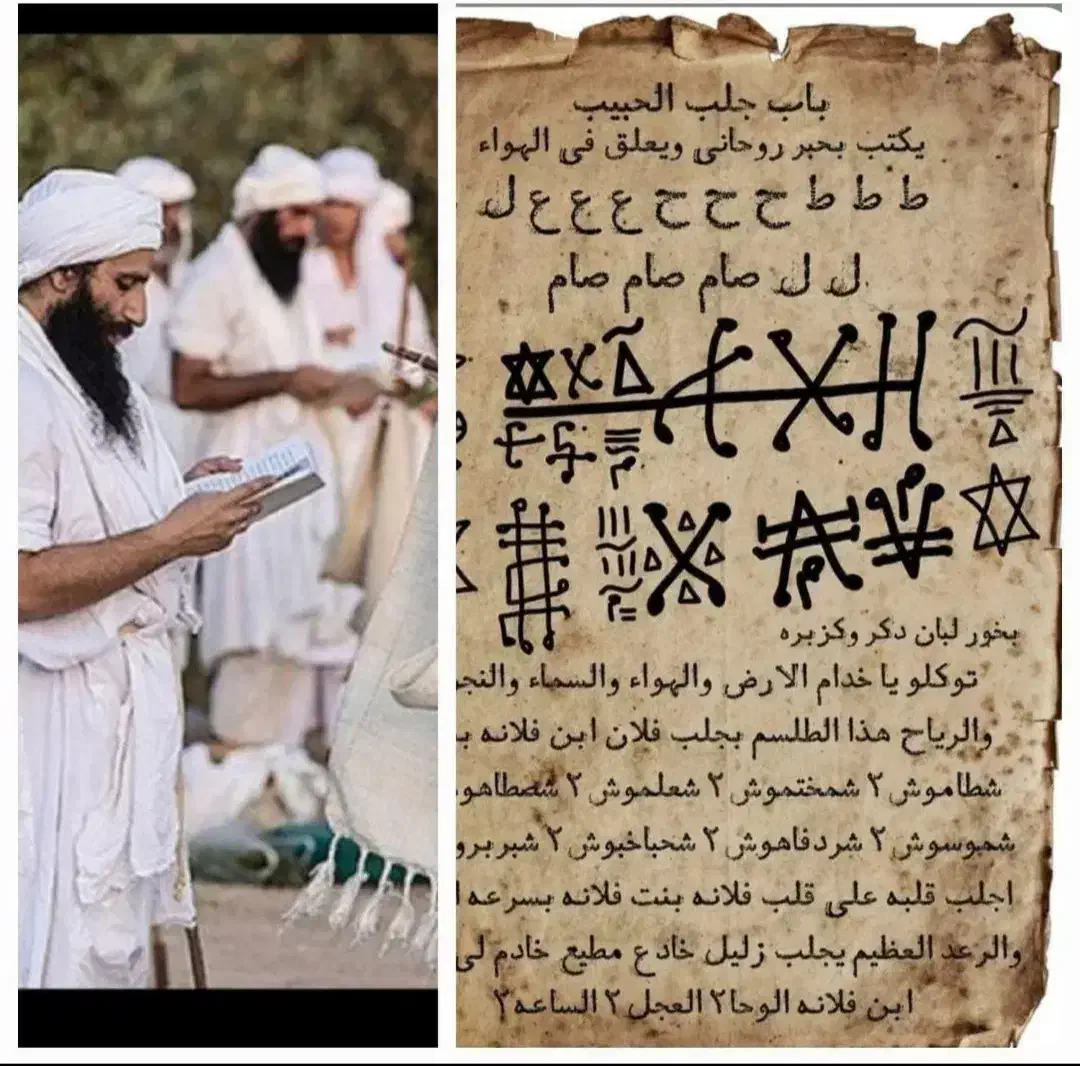 باب جلب الحبيب
يكتب بحبر روحاني ويعلق في الهواء
ط ط ط ح ح ح ع ع ع ل
ل ل صام صام صام
بخور لبان دكر وكزبره
توكلو يا خدام الارض والهواء والسماء والنجو
والرياح هذا الطلسم بجلب فلان ابن فلانه ب
شطاموش ٢ شمختموش ٢ شعلموش ٢ شصطاهو
شموسوش ٢ شردفاهوش ٢ شحباخبوش ٢ شبربرو
اجلب قلبه على قلب فلانه بنت فلانه بسرعه ا
والرعد العظيم يجلب زليل خادع مطيع خادم لى
ابن فلانه الوحا٢ العجل ٢ الساعه٢